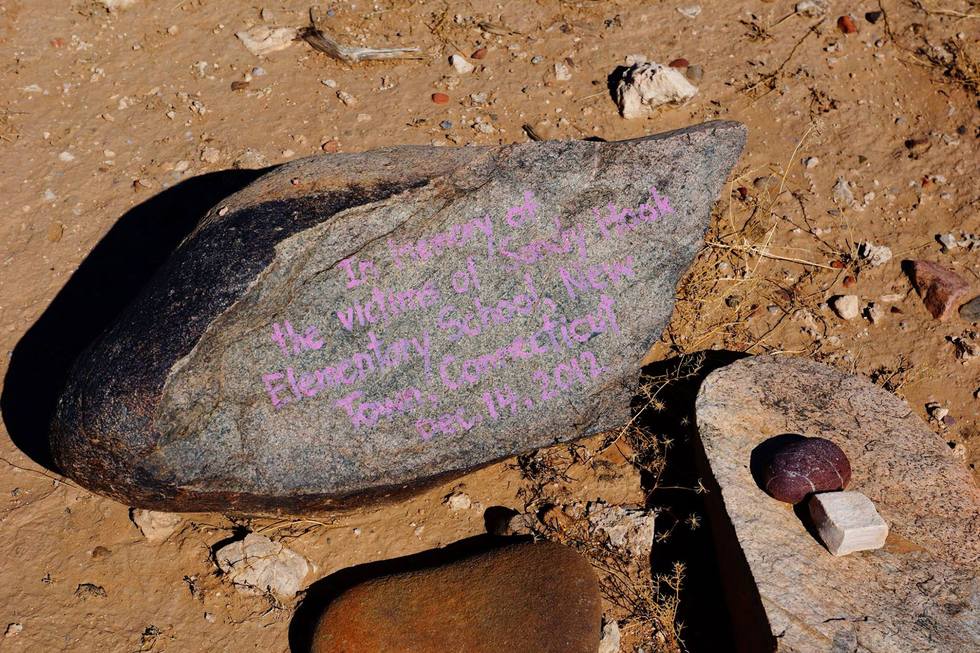 In Memory of
the victims of Sandy Hook
Elementary School, New
Town, Connecticut
Dec 14, 2012